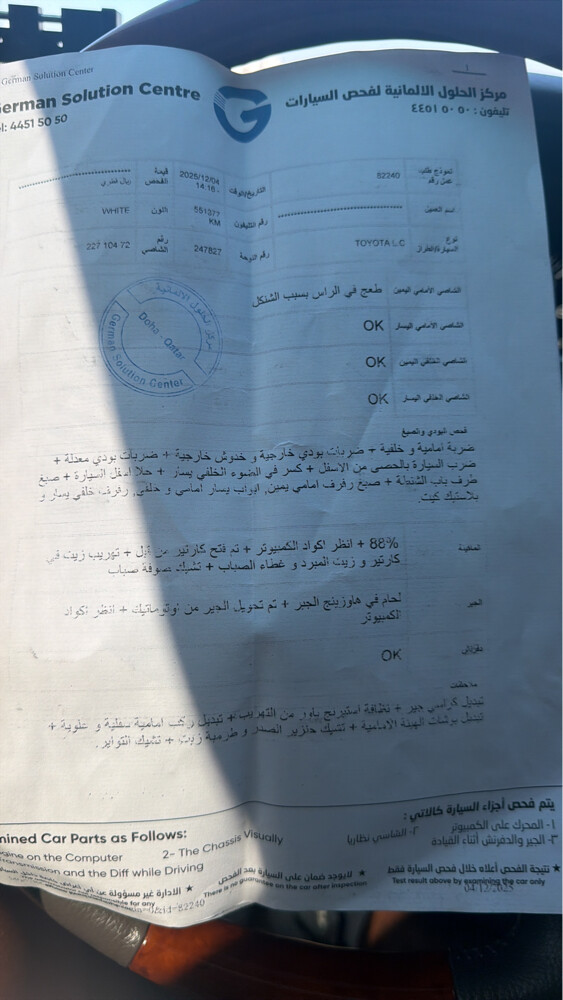 German Solution Center
German Solution Centre
مركز الحلول الالمانية لفحص السيارات
el: 4451 50 50
تليفون : ٥٠ ٥٠ ٤٤٥١
82240
التاريخ/الوقت
2025/12/04
14:16
قيمة الفحص
ريال قطري
رقم التليفون
551377
KM
اللون
WHITE
نوع السيارة/الطراز
TOYOTA LC
رقم اللوحة
247827
رقم الشاصي
227 104 72
الشاصي الأمامي اليمين
طعج في الراس بسبب الشنكل
الشاصي الأمامي اليسار
OK
الشاصي الخلفي اليمين
OK
الشاصي الخلفي اليسار
OK
مركز الحلول الالمانية
Doha - Qatar
German Solution Center
فحص البودي والصبغ
ضربة امامية و خلفية + ضربات بودي خارجية و خدوش خارجية + ضربات بودي معدلة +
ضرب السيارة بالحصى من الاسفل + كسر في الضوء الخلفي يسار + حلا اسفل السيارة + صبغ
طرف باب الشنطة + صبغ رفرف امامي يمين, ابواب يسار امامي و خلفي, رفرف خلفي يسار و
بلاستيك كيت.
الماكينة
88% + انظر اكواد الكمبيوتر + تم فتح كارتير من قبل + تهريب زيت في
كارتير و زيت المبرد و غطاء الصباب + تشيك صوفة صباب
الجير
لحام في هاوزينج الجير + تم تحويل الجير من اوتوماتيك + انظر اكواد
الكمبيوتر
OK
ملاحظات
تبديل كراسي جير + نظافة استيرنج باور من التهريب + تبديل ركب امامية سفلية و علوية +
تبديل بوشات الهيئة الامامية + تشيك جنازير الصدر و طرمبة زيت + تشيك التواير.
يتم فحص أجزاء السيارة كالاتي :
mined Car Parts as Follows:
١- المحرك على الكمبيوتر
٢- الشاسي نظاريا
ngine on the Computer
2- The Chassis Visually
٣- الجير والدفرنش أثناء القيادة
ransmission and the Diff while Driving
★ نتيجة الفحص أعلاه خلال فحص السيارة فقط
Test result above by examining the car only
★ لايوجد ضمان على السيارة بعد الفحص
There is no guarantee on the car after inspection
★ الادارة غير مسؤولة عن
04/12/2025